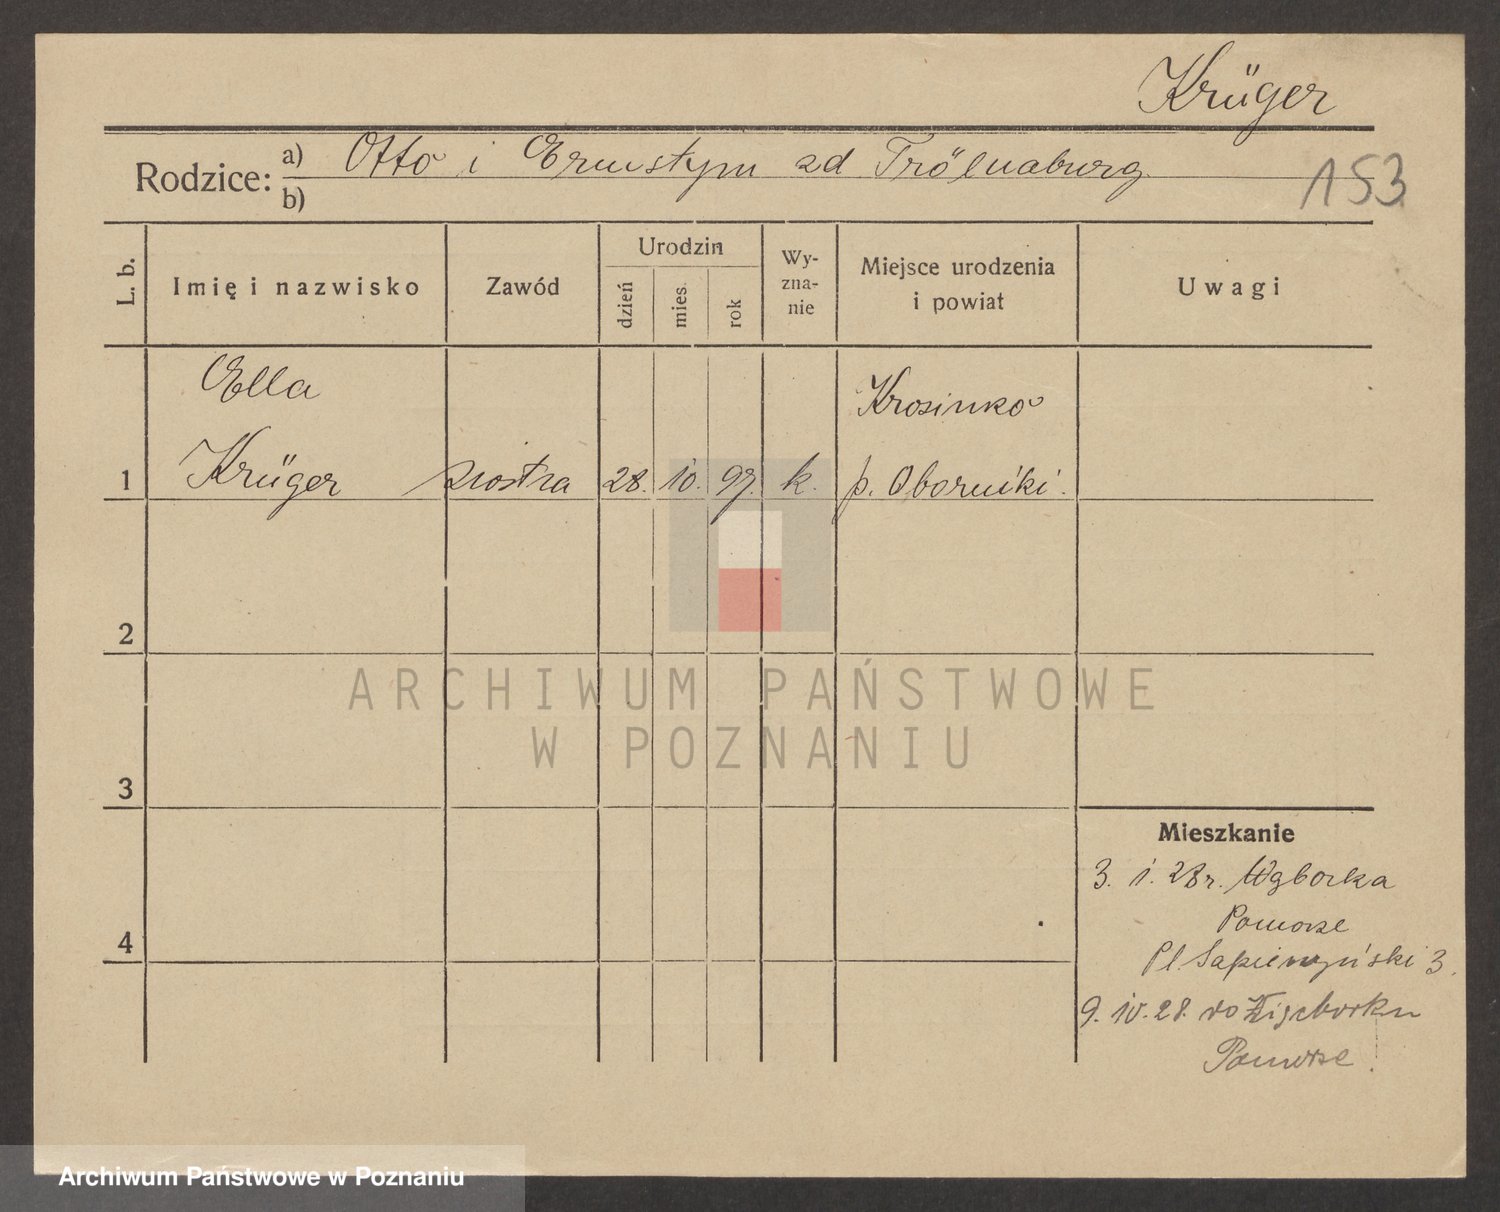 Krüger
Rodzice: a) Otto i Ernestyn zd
b)
153
L. b.
Imię i nazwisko
Zawód
Urodzin
dzień
mies.
rok
Wy-
zna-
nie
Miejsce urodzenia
i powiat
Uwagi
Ella
Krosinko
1 Krüger siostra 28. 10. 97. k. p. Oborniki.
2
ARCHIWUM PAŃSTWOWE
W POZNANIU
3
Mieszkanie
3. 1. 28 r.
Pomorze
4
Pl. 3.
9. IV. 28. do
Pomorze.
Archiwum Państwowe w Poznaniu